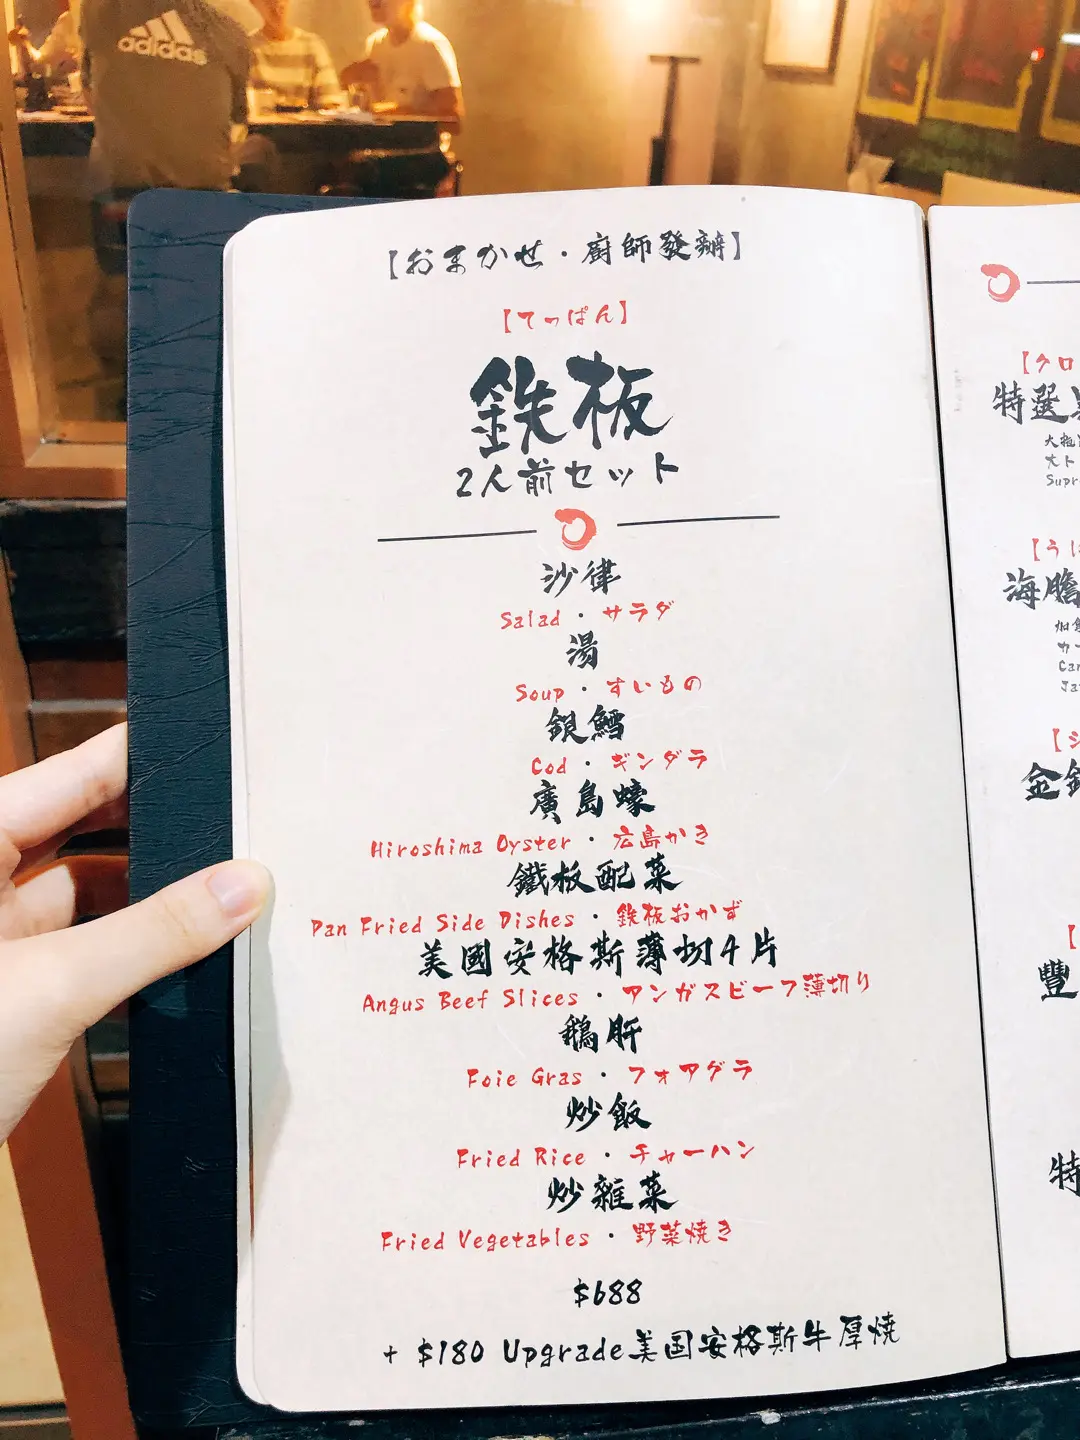 adidas
【おまかせ・廚師發辦】
【てっぱん】
鉄板
2人前セット
沙律
Salad・サラダ
湯
Soup・すいもの
銀鱈
Cod・ギンダラ
廣島蠔
Hiroshima Oyster・広島かき
鐵板配菜
Pan Fried Side Dishes・鉄板おかず
美國安格斯薄切4片
Angus Beef Slices・アンガスビーフ薄切り
鵝肝
Foie Gras・フォアグラ
炒飯
Fried Rice・チャーハン
炒雜菜
Fried Vegetables・野菜焼き
$688
+ $180 Upgrade美国安格斯牛厚燒
【クロ
特選
大ト
Supr
【うに
海膽
カー
Can
Ja
金
豐
特